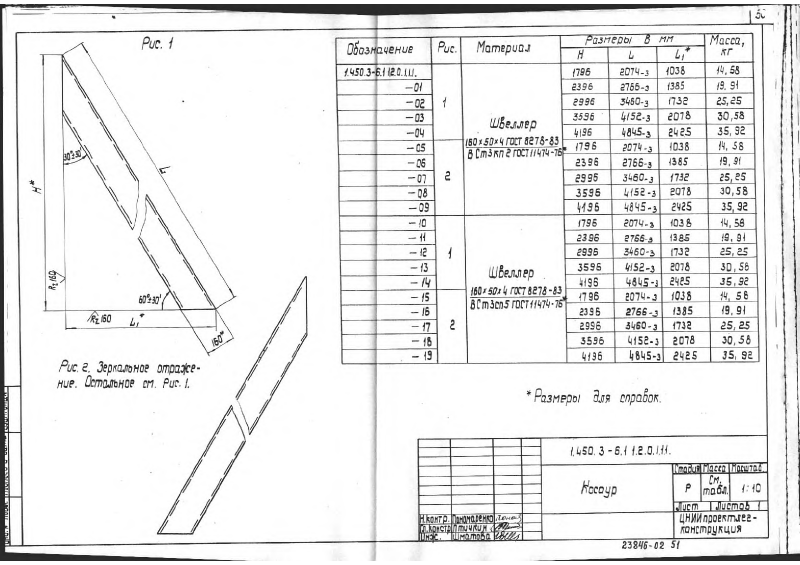 50
Рис. 1
H*
L
30°±30'
Rz 160
60°±30'
Rz 160
L₁*
160*
Рис. 2. Зеркальное отраже-
ние. Остальное см. Рис. 1.
Обозначение Рис. Материал Размеры в мм Масса, кг
H L L₁*
1.450.3-6.1 1.2.0.1.11. 1 Швеллер 160×50×4 ГОСТ 8278-83 В Ст3кп2 ГОСТ 11474-76* 1796 2074-3 1038 14,58
-01 2396 2766-3 1385 19,91
-02 2996 3460-3 1732 25,25
-03 3596 4152-3 2078 30,58
-04 4196 4845-3 2425 35,92
-05 2 1796 2074-3 1038 14,58
-06 2396 2766-3 1385 19,91
-07 2996 3460-3 1732 25,25
-08 3596 4152-3 2078 30,58
-09 4196 4845-3 2425 35,92
-10 1 Швеллер 160×50×4 ГОСТ 8278-83 В Ст3сп5 ГОСТ 11474-76* 1796 2074-3 1038 14,58
-11 2396 2766-3 1385 19,91
-12 2996 3460-3 1732 25,25
-13 3596 4152-3 2078 30,58
-14 4196 4845-3 2425 35,92
-15 2 1796 2074-3 1038 14,58
-16 2396 2766-3 1385 19,91
-17 2996 3460-3 1732 25,25
-18 3596 4152-3 2078 30,58
-19 4196 4845-3 2425 35,92
* Размеры для справок.
1.450.3-6.1 1.2.0.1.11.
Косоур
Стадия Масса Масштаб
Р См. табл. 1:10
Лист Листов 1
Н.контр. Пономаренко
Гл.констр. Птичкин
Инж. Шматова
ЦНИИпроектлег-
конструкция
23846-02 51